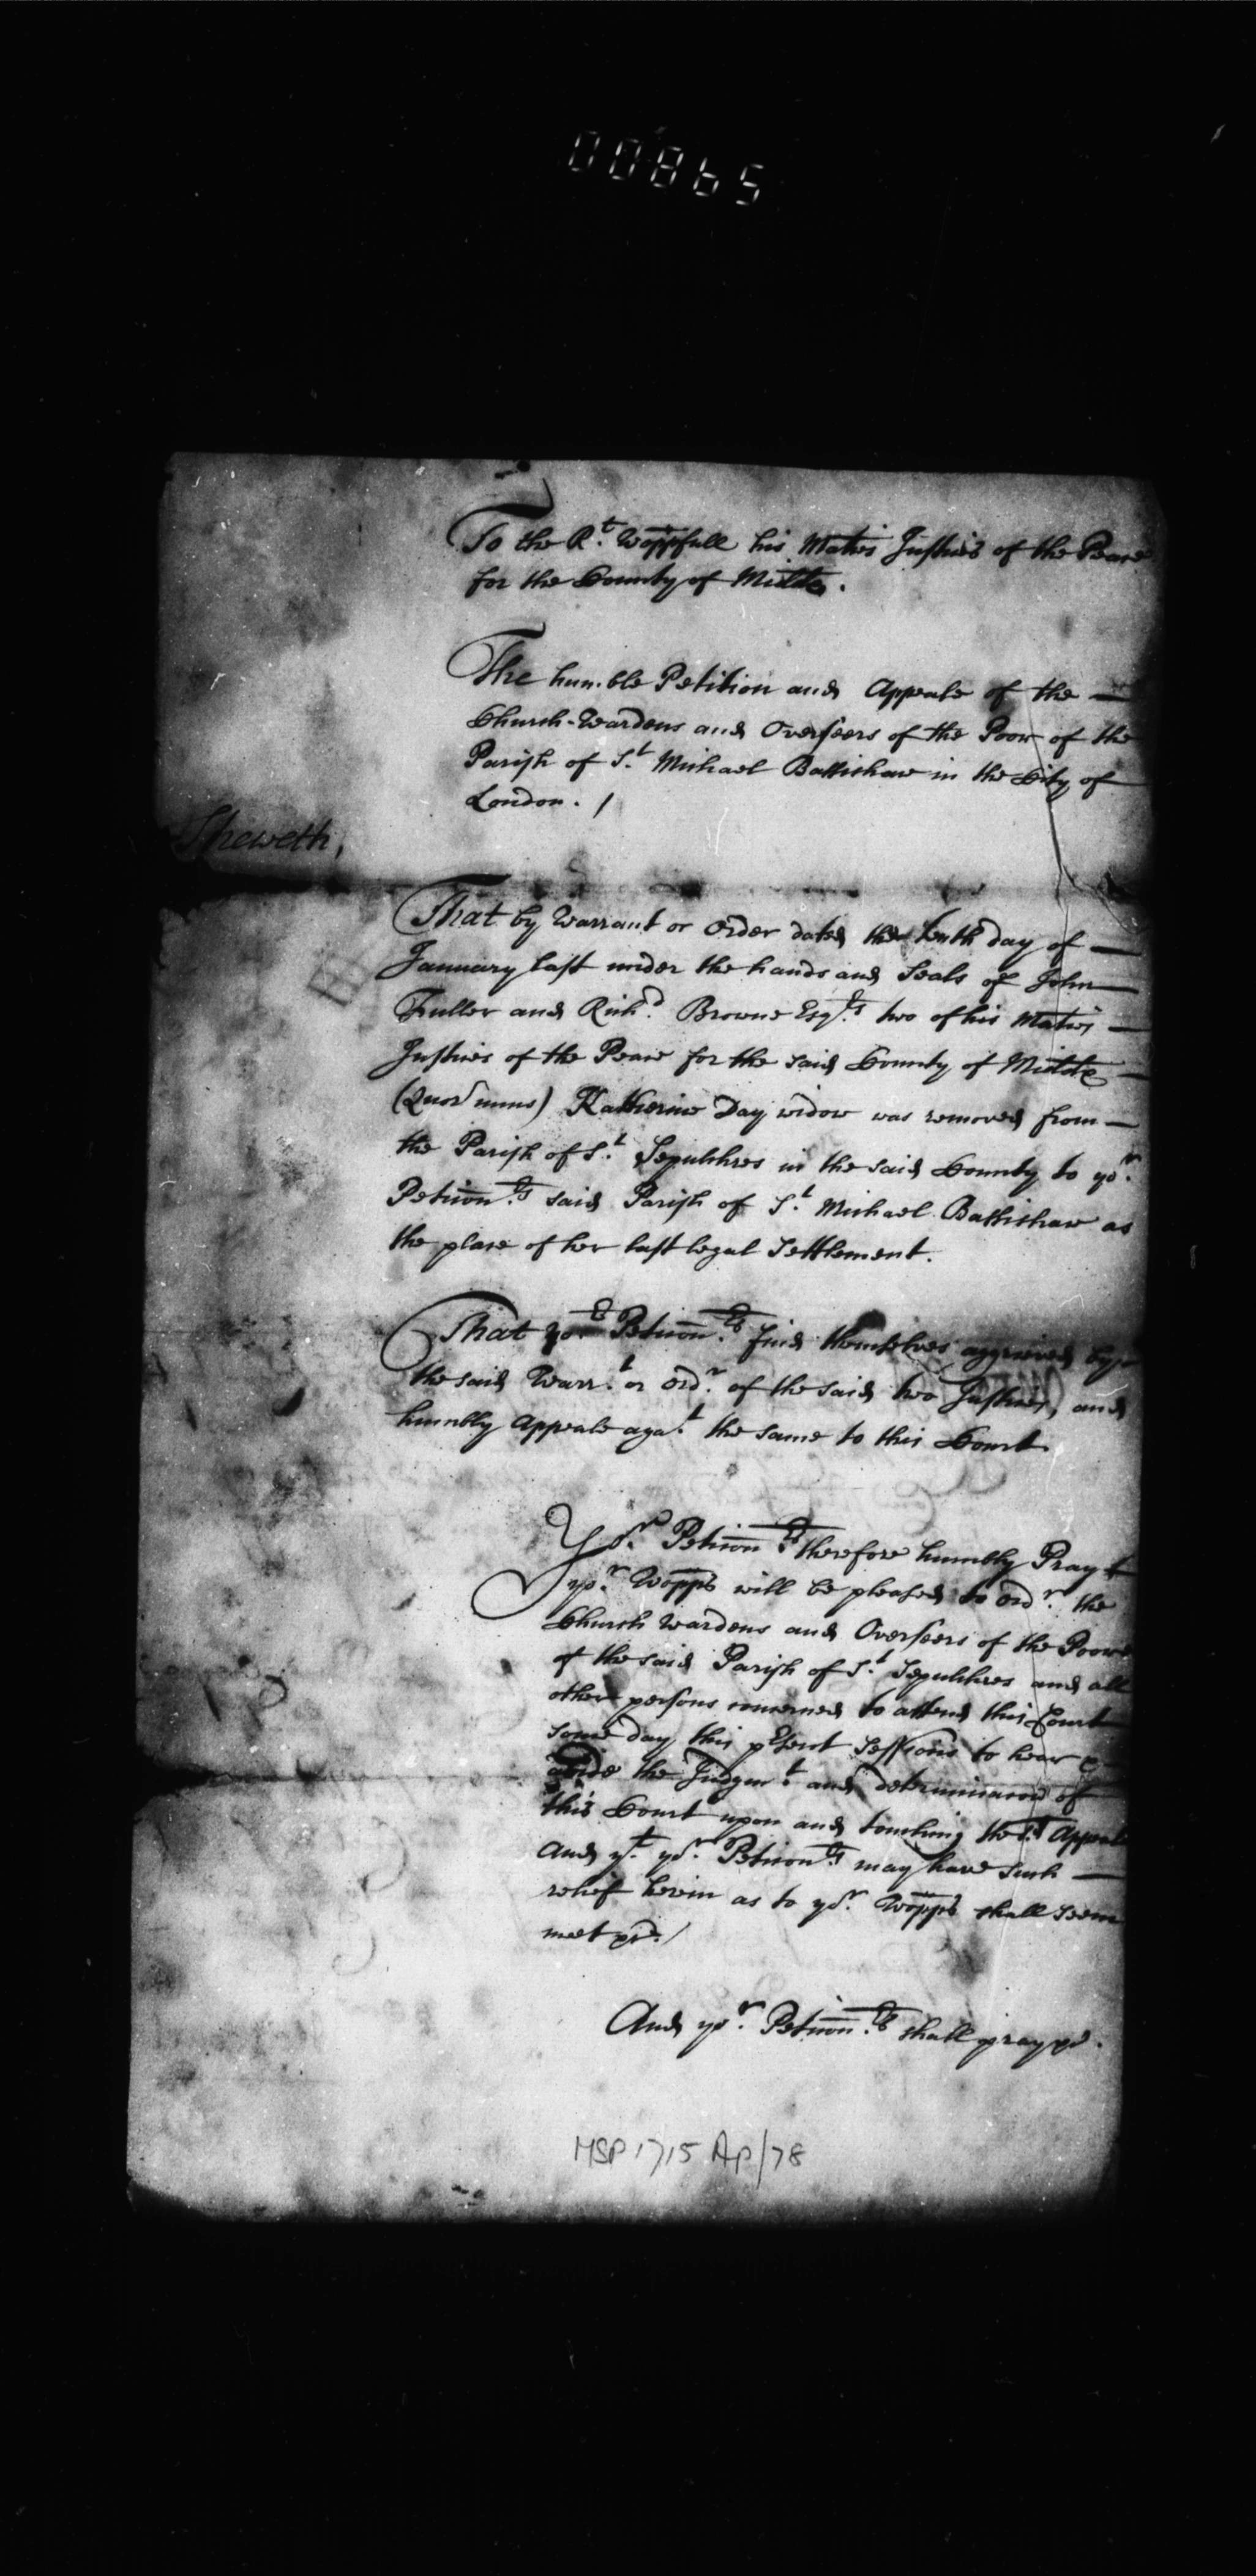 00865
To the Rt. Woppfull his Maties Justices of the Peace
for the County of Middx.
The humble Petition and Appeale of the
Church-Wardens and Overseers of the Poor of the
Parish of St. Michael Bassishaw in the City of
London. /
Sheweth,
That by Warrant or Order dated the tenth day of
January last under the hands and Seals of John
Fuller and Richd. Browne Esqrs. two of his Maties
Justices of the Peace for the said County of Middx
(Quor unus) Katherine Day widow was removed from
the Parish of St. Sepulchres in the said County to yor.
Peticonrs. said Parish of St. Michael Bassishaw as
the place of her last legal Settlement.
That yor. Peticonrs. find themselves aggrieved by
the said Warrt. or Ordr. of the said two Justices, and
humbly Appeale agat. the same to this Court
Yor. Peticonrs. therefore humbly Pray
yor. Wopps will be pleased to Ordr. the
Church wardens and Overseers of the Poore
of the said Parish of St. Sepulchres and all
other persons concerned to attend this Court
some day this psent Sessions to hear &
abide the Judgmt. and determinacon of
this Court upon and touching the sd. Appeal
And yt. yor. Peticonrs may have such
relief herein as to yor. Wopps shall seem
meet &c. /
And yor. Peticonrs. shall pray &c.
MSP 1715 Ap/78